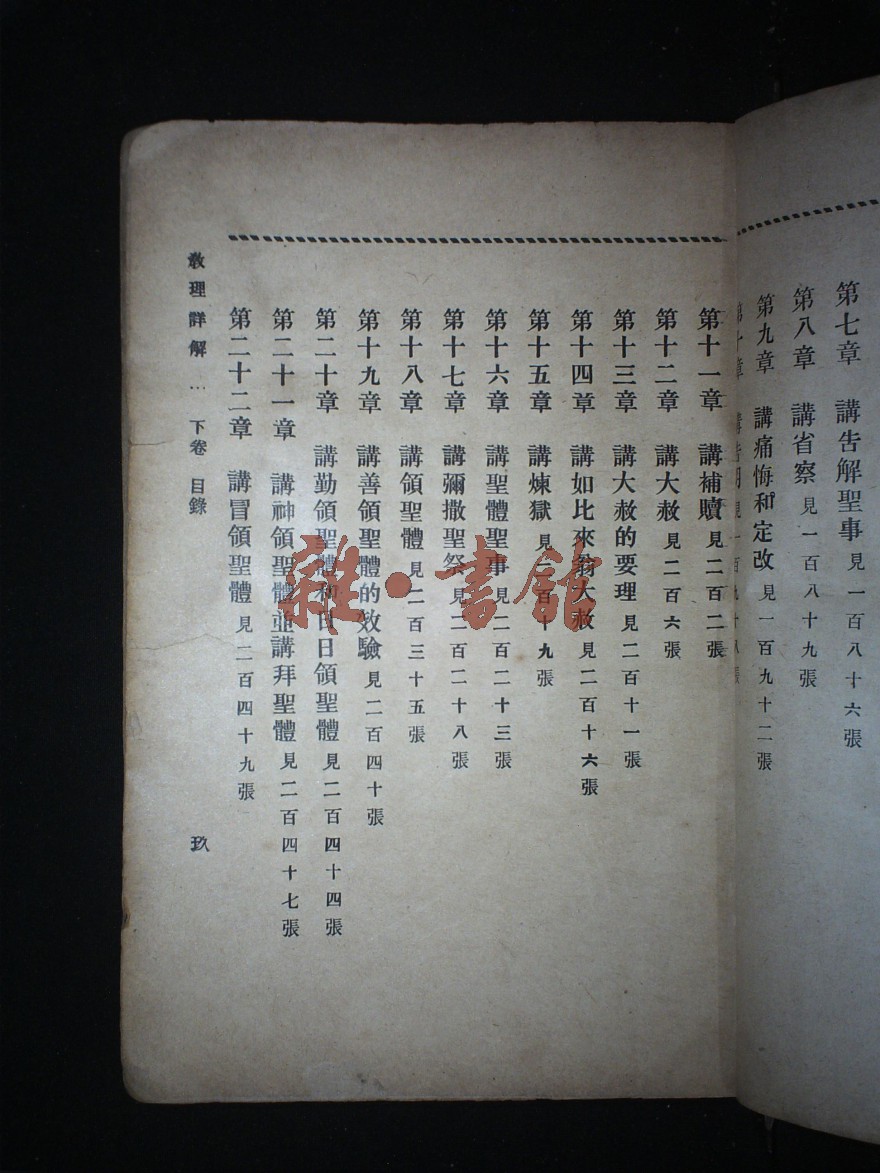 第七章 講吿解聖事 見一百八十六張
第八章 講省察 見一百八十九張
第九章 講痛悔和定改 見一百九十二張
第十章 講吿明 見一百九十八張
第十一章 講補贖 見二百二張
第十二章 講大赦 見二百六張
第十三章 講大赦的要理 見二百十一張
第十四章 講如比來翁大赦 見二百十六張
第十五章 講煉獄 見二百十九張
第十六章 講聖體聖事 見二百二十三張
第十七章 講彌撒聖祭 見二百二十八張
第十八章 講領聖體 見二百三十五張
第十九章 講善領聖體的效驗 見二百四十張
第二十章 講勤領聖體和日日領聖體 見二百四十四張
第二十一章 講神領聖體並講拜聖體 見二百四十七張
第二十二章 講冒領聖體 見二百四十九張
敎理詳解 … 下卷 目錄 玖
雜·書館